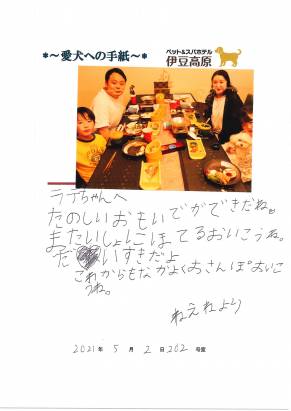 *～愛犬への手紙～*
ペット&スパホテル
伊豆高原
ラテちゃんへ
たのしいおもいでができたね。
またいっしょにほてるおいこうね。
だいすきだよ
これからもなかよくおさんぽおいこ
うね。
ねえねより
2021年 5月 2日 202号室